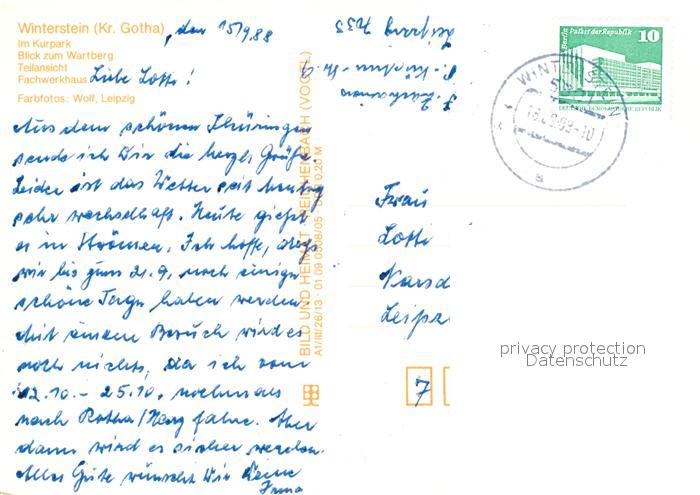 Winterstein (Kr. Gotha)
Im Kurpark
Blick zum Wartberg
Teilansicht
Fachwerkhaus
Farbfotos: Wolf, Leipzig
, den 15/9.88
Liebe Lotte!
Aus dem schönen Thüringen
sende ich Dir die herzl. Grüße
Leider ist das Wetter seit
sehr wechselhaft. Heute gießt
es in Strömen. Ich hoffe, daß
wir bis zum 21.9. noch einige
schöne Tage haben werden.
Mit einem Besuch wird es
noch nichts, da ich vom
12.10. - 25.10. nochmals
nach Rotha/Harz fahre. Aber
dann wird es sicher werden.
Alles Gute wünscht Dir Deine
Irma
BILD UND HEIMAT REICHENBACH (VOGTL)
A1/III/26/13 01 09 0508/05 0,20 M
Leipzig 7033
Berlin Palast der Republik
10
DEUTSCHE DEMOKRATISCHE REPUBLIK
WINTERSTEIN
a
Frau
Lotte
Leipz
7
privacy protection
Datenschutz